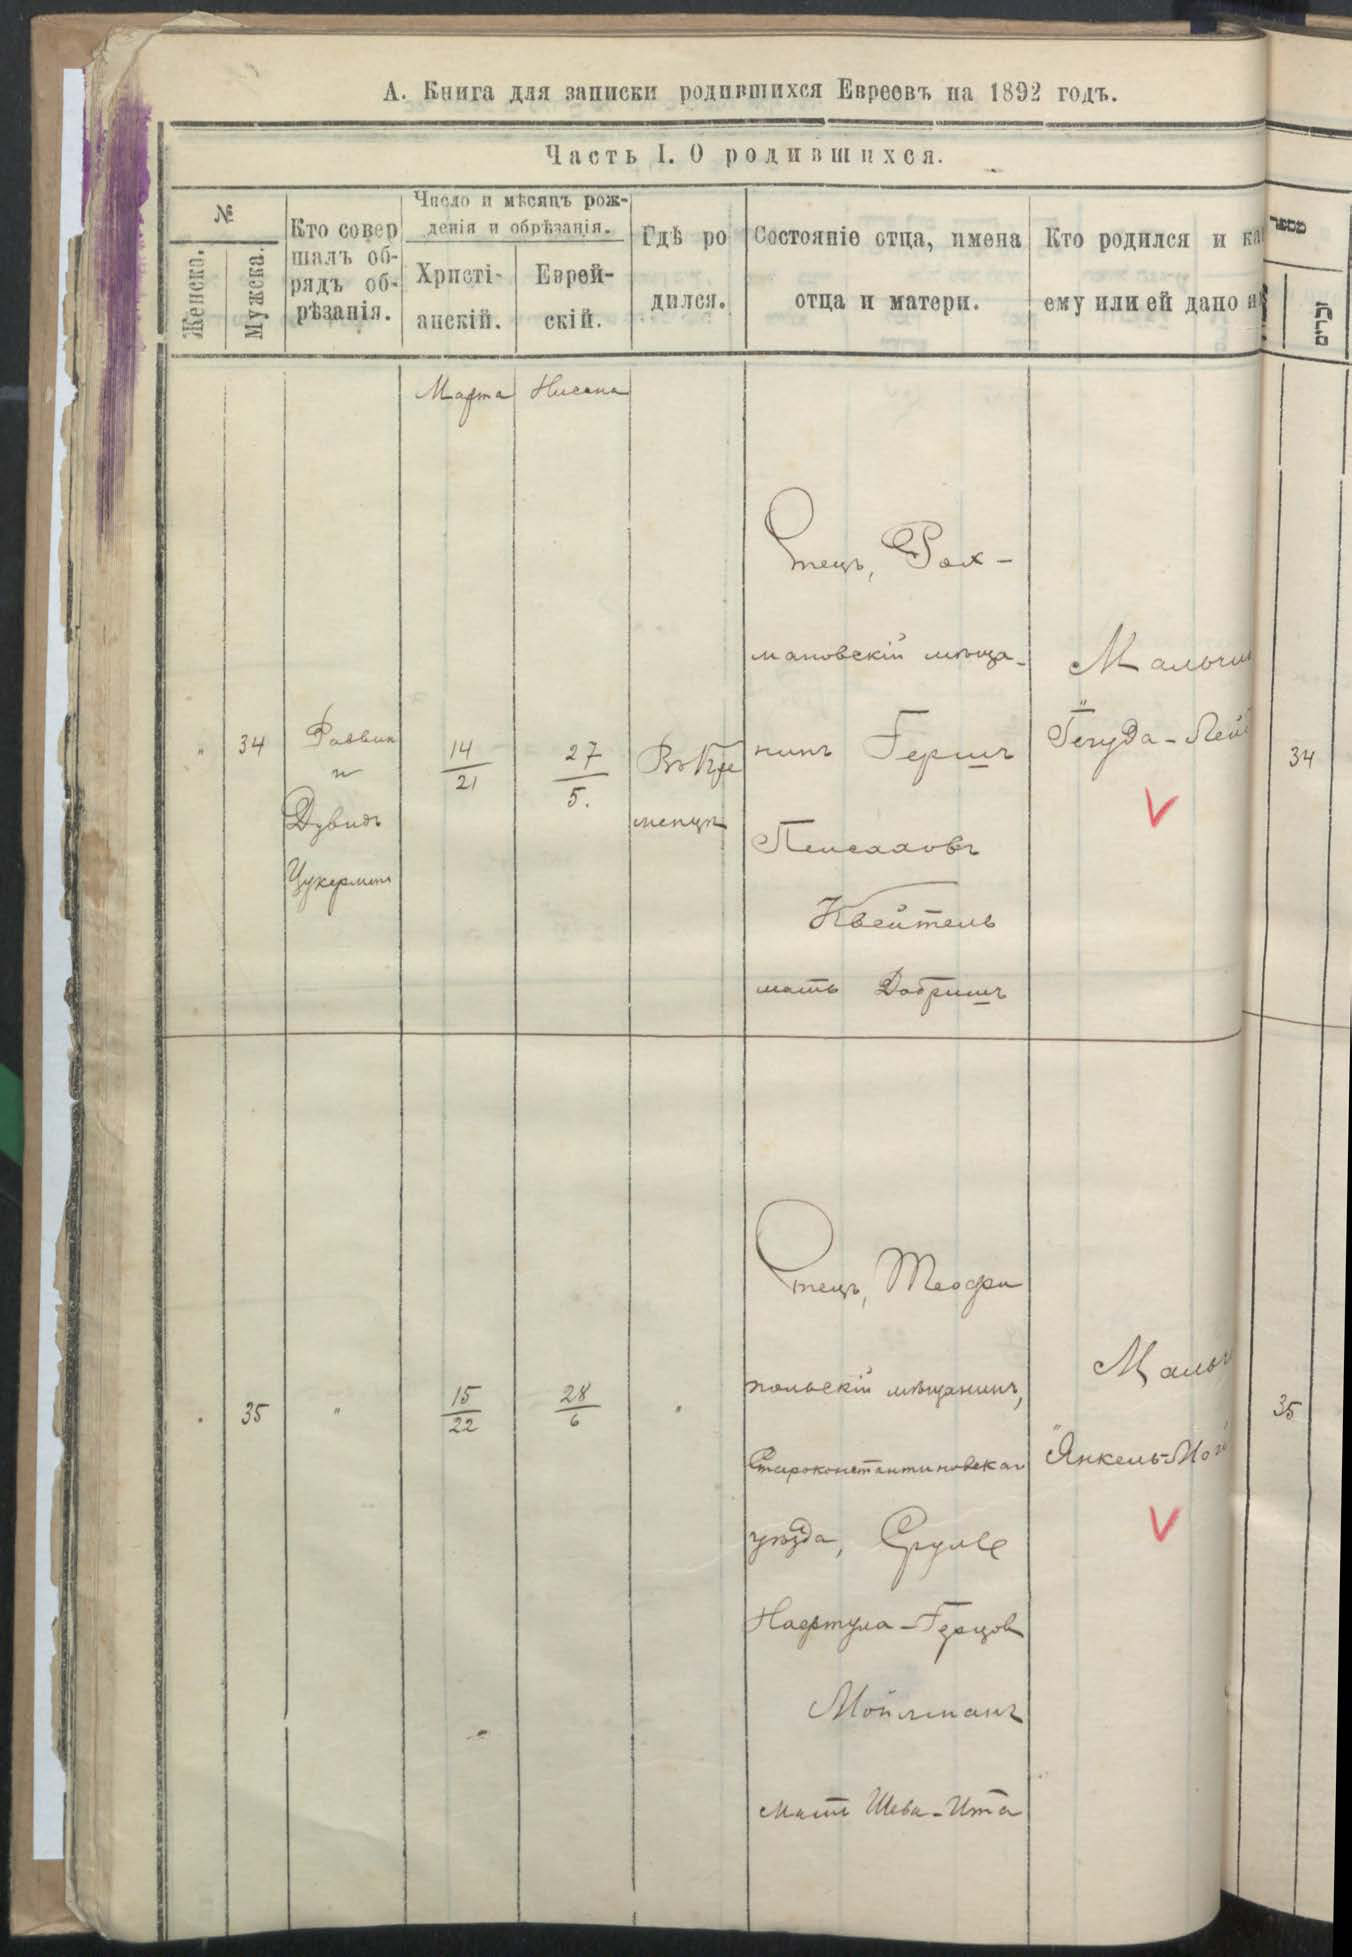 А. Книга для записки родившихся Евреевъ на 1892 годъ.
Часть I. О родившихся.
№
Женска.
Мужеска.
Кто совер
шалъ об-
рядъ об-
рѣзанія.
Число и мѣсяцъ рож-
денія и обрѣзанія.
Христі-
анскій.
Еврей-
скій.
Гдѣ ро
дился.
Состояніе отца, имена
отца и матери.
Кто родился и ка
ему или ей дано и
מספר
זכרים
Марта
Нисана
"
34
Раввин
и
Дувидъ
Цукерман
14
21
27
5.
Въ Кре
менцѣ
Отецъ, Рах-
мановскій мѣща-
нинъ Гершъ
Пейсаховъ
Квейтель
мать Добришъ
Мальчи
Іегуда-Лей
34
"
35
"
15
22
28
6
"
Отецъ, Теофи
польскій мѣщанинъ,
Староконстантиновскаго
уѣзда, Сруль
Нафтула-Герцов
Мойлманъ
Мать Шева-Ита
Маль
Янкель-Мо
35